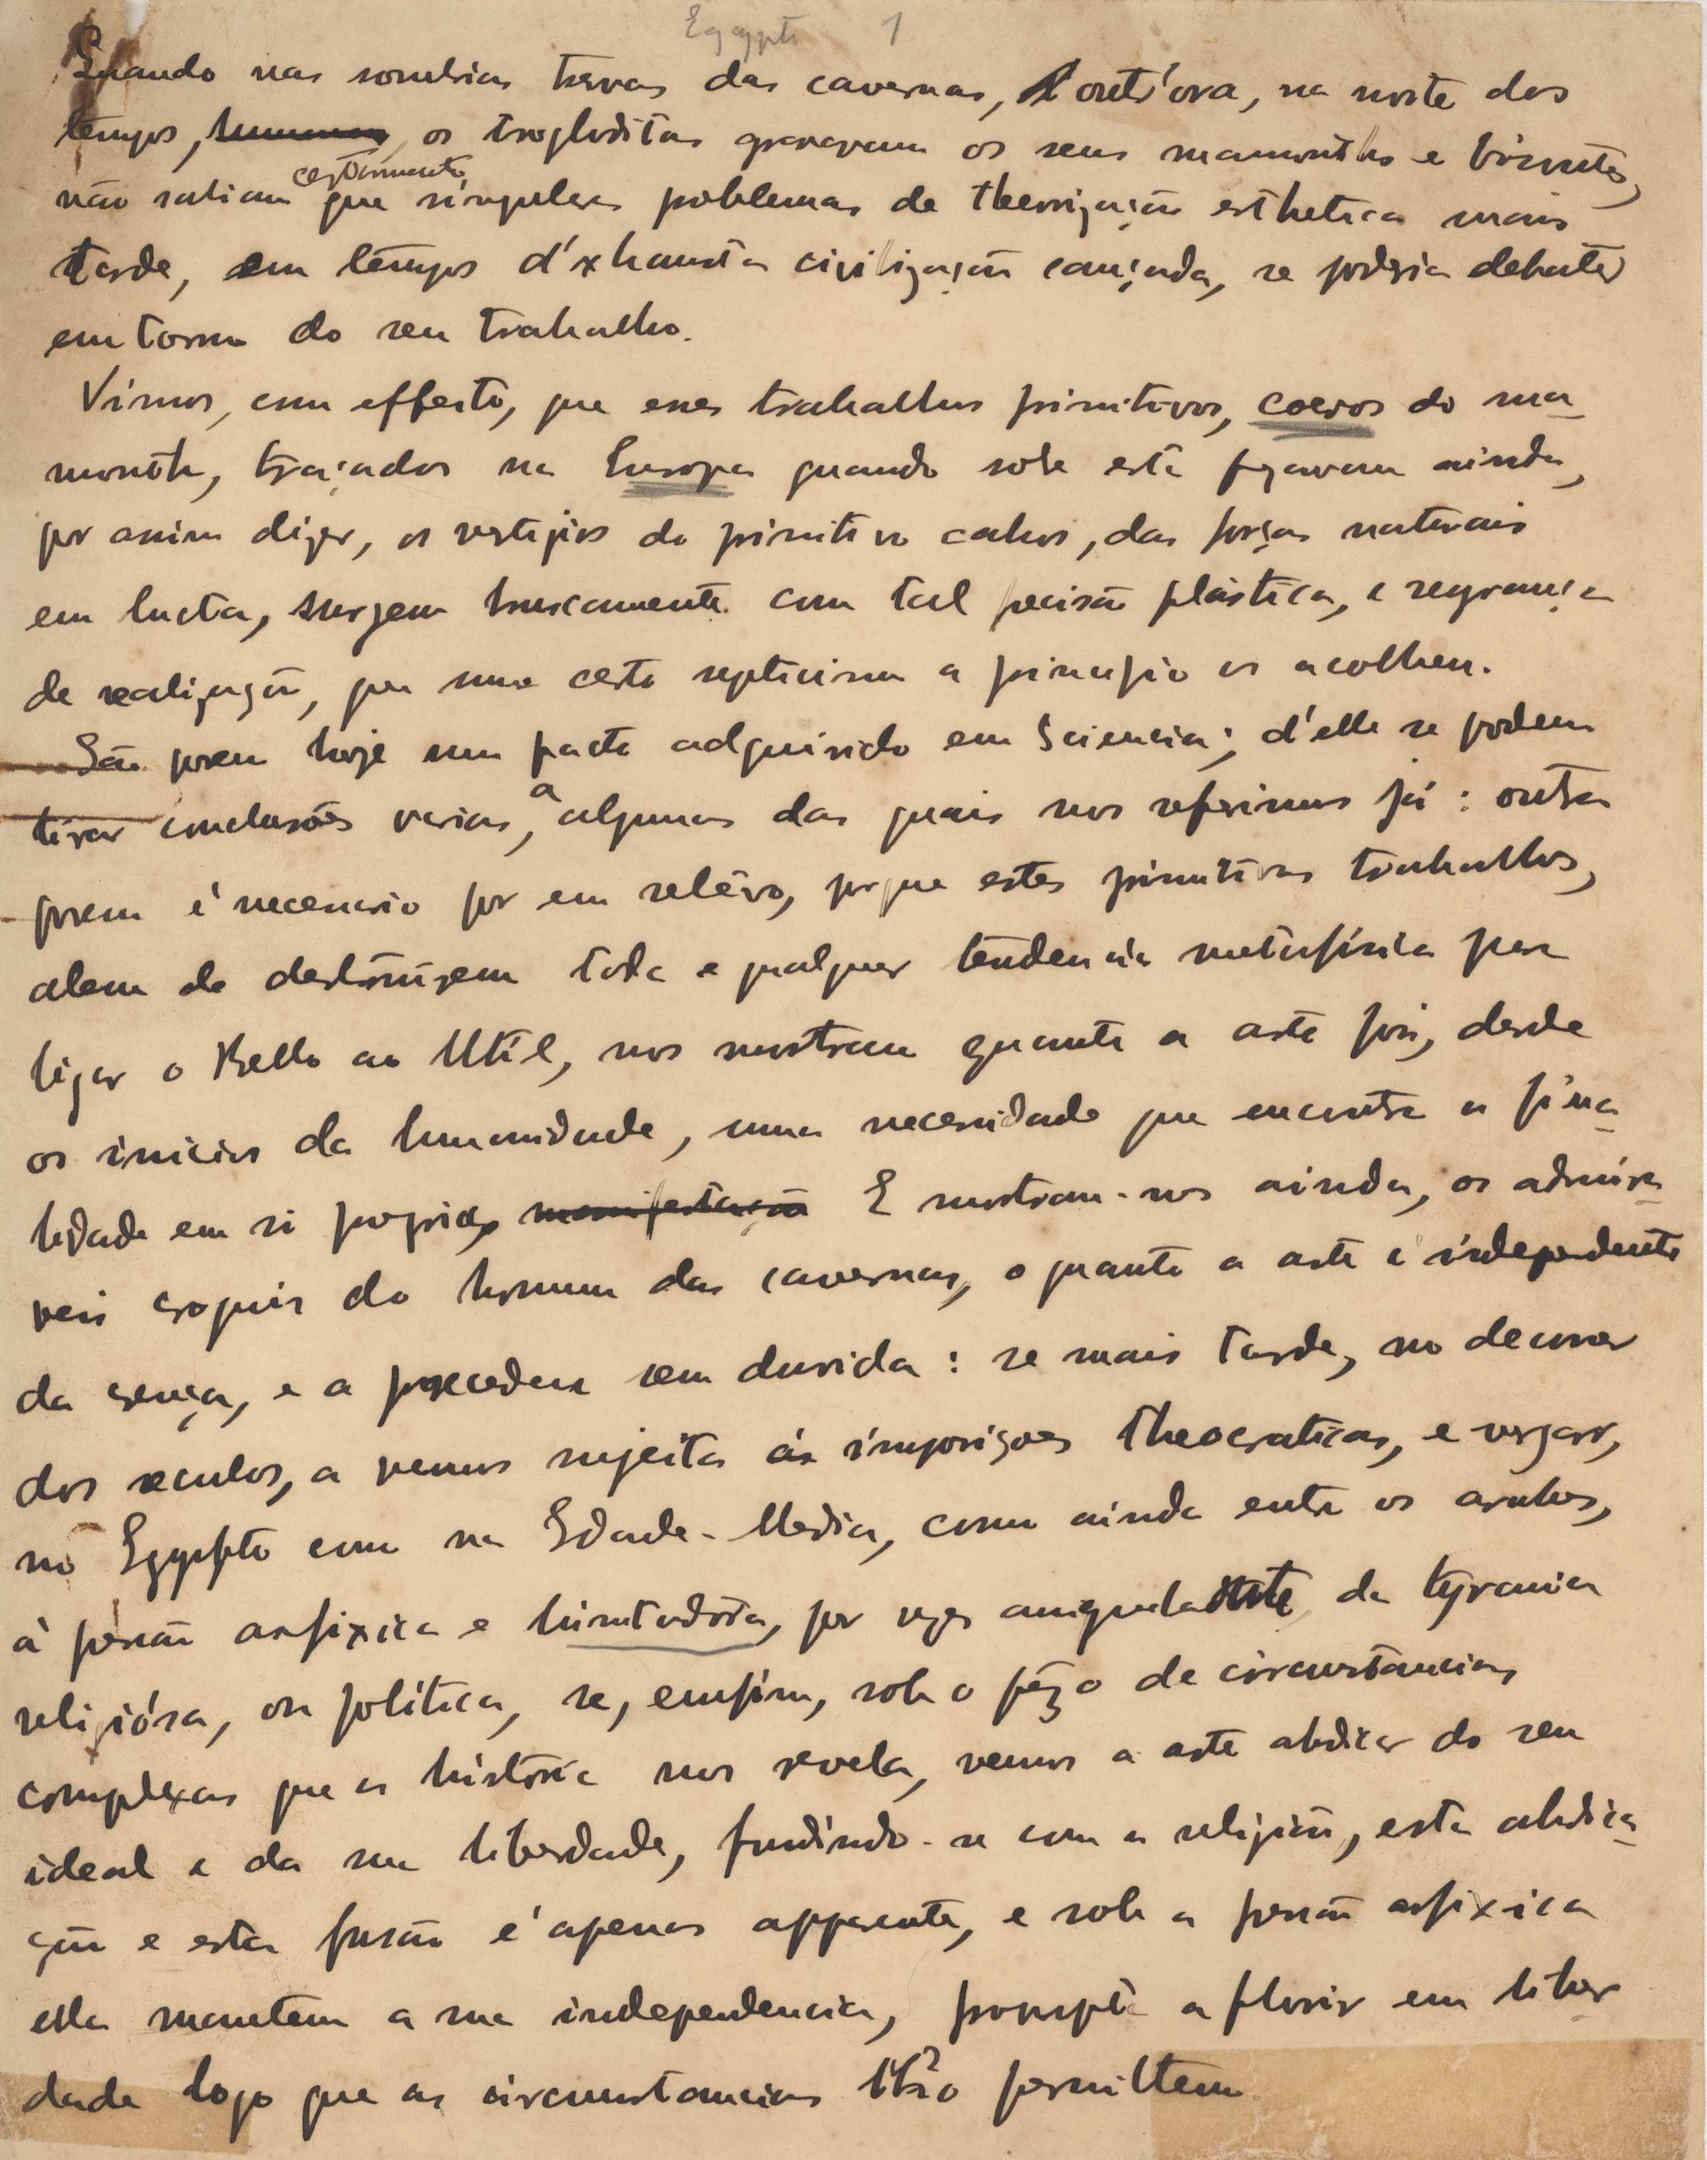 Egypto 1
Quando nas sombrias trevas das cavernas, outr'ora, na noite dos
tempos, os trogloditas gravavam os seus mamouths e bisontes,
certamente
não sabiam que singulares problemas de theorização esthetica mais
tarde, em tempos d'exhausta civilização cançada, se poderia debater
em torno do seu trabalho.
Vimos, com effeito, que esses trabalhos primitivos, coevos do ma-
mouth, traçados na Europa quando sobre esta pezavam ainda,
por assim dizer, os vestigios do primitivo cahos, das forças naturais
em lucta, surgem bruscamente com tal precisão plástica, e segurança
de realização, que um certo septicismo a principio os acolheu.
São porem hoje um facto adquirido em Sciencia; d'elle se podem
tirar conclusões varias, a algumas das quais nos referimos já: outra
porem é necessario por em relêvo, porque estes primitivos trabalhos,
alem de destruirem toda e qualquer tendencia metafísica para
ligar o Bello ao Util, nos mostram quanto a arte foi, desde
os inicios da humanidade, uma necessidade que encontra a fina-
lidade em si propria, manifestação E mostram-nos ainda, os admira-
veis croquis do homem das cavernas, o quanto a arte é independente
da crença, e a precedeu sem duvida: se mais tarde, no decorrer
dos seculos, a vemos sujeita ás imposições theocraticas, e vergar,
no Egypto como na Edade-Media, como ainda entre os arabes,
á pressão asfixica e limitadôra, por vezes aniquiladora da tyrania
religiósa, ou politica, se, emfim, sob o pêzo de circumstancias
complexas que a história nos revela, vemos a arte abdicar do seu
ideal e da sua liberdade, fundindo-se com a religião, esta abdica-
ção e esta fusão é apenas apparente, e sob a pressão asfixica
ella mantem a sua independencia, prompta a florir em liber-
dade logo que as circumstancias lh'o permittem